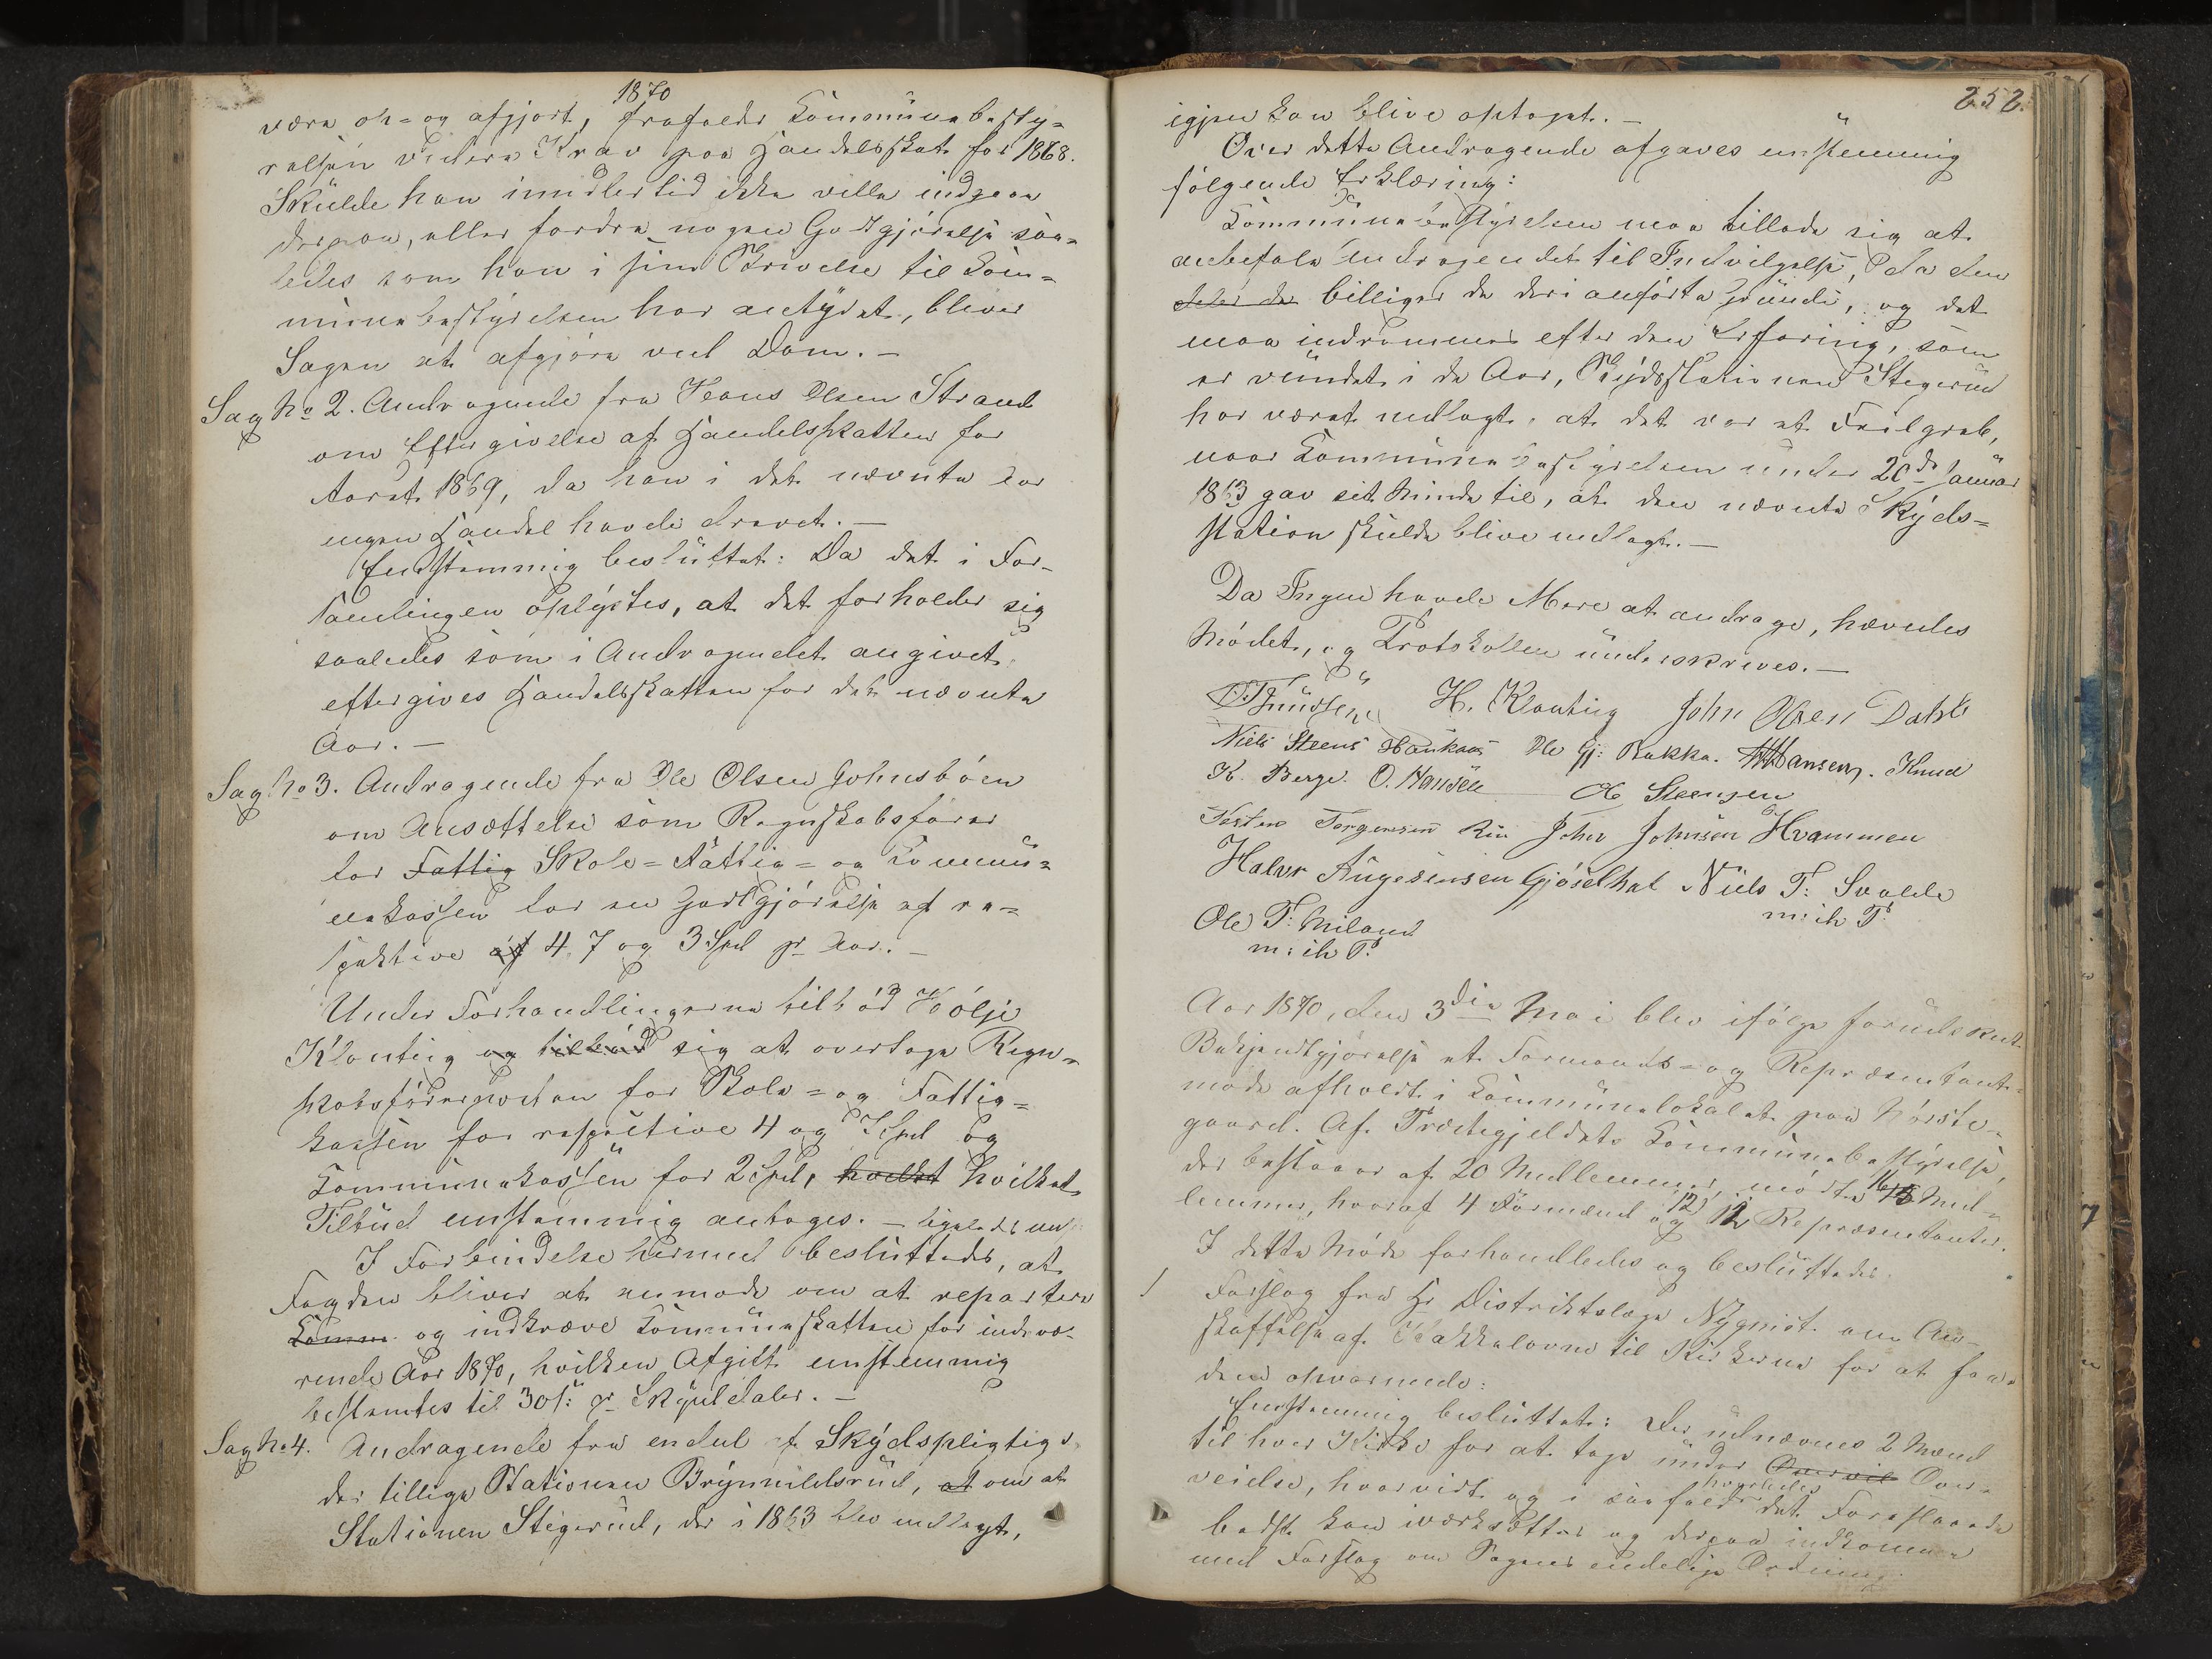 1870
være op- og afgjort, frafalder Kommunebesty-
relsen videre Krav paa Handelsskat for 1868.
Skulde han imidlertid ikke ville indgaa
derpaa, eller fordre nogen Godtgjørelse saa-
ledes som han i sin Skrivelse til Kom-
munebestyrelsen har antydet, bliver
Sagen at afgjøre ved Dom. -
Sag No 2. Andragende fra Hans Olsen Strand
om Eftergivelse af Handelsskatten for
Aaret 1869, da han i det nævnte Aar
ingen Handel havde drevet. -
Enstemmig besluttet: Da det i For-
samlingen oplystes, at det forholder sig
saaledes som i Andragendet angivet,
eftergives Handelsskatten for det nævnte
Aar. -
Sag No 3. Andragende fra Ole Olsen Johnsbøen
om Ansættelse som Regnskabsfører
for Fattig Skole- Fattig- og Kommu-
nekassen for en Godtgjørelse af re-
spektive af 4, 7 og 3 Spd pr Aar. -
Under Forhandlingerne tilbød Hølje
Klonteig og tilbød sig at overtage Regn-
skabsførerposten for Skole- og Fattig-
kassen for respektive 4 og 7 Spd og
Kommunekassen for 2 Spd, hvilket hvilket
Tilbud enstemmig antoges. - ligeledes
I Forbindelse hermed besluttedes, at
Fogden bliver at anmode om at repartere
Komm. og indkræve Kommuneskatten for indevæ-
rende Aar 1870, hvilken Afgift enstemmig
bestemtes til 30 s: pr Skylddaler. -
Sag No 4. Andragende fra endel af Skydspligtige
der tillige Stationen Brynnildsrud, at om at
Stationen Stigerud, der i 1863 blev nedlagt,
252.
igjen kan blive optaget. -
Over dette Andragende afgaves enstemmig
følgende Erklæring:
Kommunebestyrelsen maa tillade sig at
anbefale Andragendet til Indvilgelse, da den
deler de billiger de deri anførte Grunde, og det
maa indrømmes efter den Erfaring, som
er vundet i de Aar, Skydsstationen Stegerud
har været nedlagt, at det var et Feilgreb,
naar Kommunebestyrelsen under 20de Januar
1863 gav sit Minde til, at den nævnte Skyds-
station skulde blive nedlagt. -
Da Ingen havde Mere at andrage, hævedes
Mødet, og Protokollen underskreves. -
H. Klonteig John Olsen Dahle
Niels Steens Haukaas Ole Gj: Bakka. Hansen. Knud
K. Berge. O. Hansen Ole Steensen
Torgensen John Johnsen Hvammen
Halvor Aagesensen Gjøselhal Niels T: Svalde
m: ih: P:
Ole T: Miland
m: ih P:
Aar 1870, den 3die Mai blev ifølge forudskeet
Bekjendtgjørelse et Formands- og Repræsentant-
møde afholdt i Kommunelokalet paa Norste-
gaard. Af Præstegjeldets Kommunebestyrelse,
der bestaaer af 20 Medlemmer, mødte 16 Med-
lemmer, hvoraf 4 Formænd og 12 Repræsentanter.
I dette Møde forhandledes og besluttedes:
1 Forslag fra Hr Distriktslæge Nyquist om An-
skaffelse af Kakkelovne til Kirkerne for at faa
dem opvarmede:
Enstemmig besluttet: Der udnævnes 2 Mænd
til hver Kirke for at tage under Overvei Over-
veielse, hvorvidt og i saafald hvorledes det Foreslaaede
bedst kan iværksættes og derpaa indkomme
med Forslag om Sagens endelige Ordning.